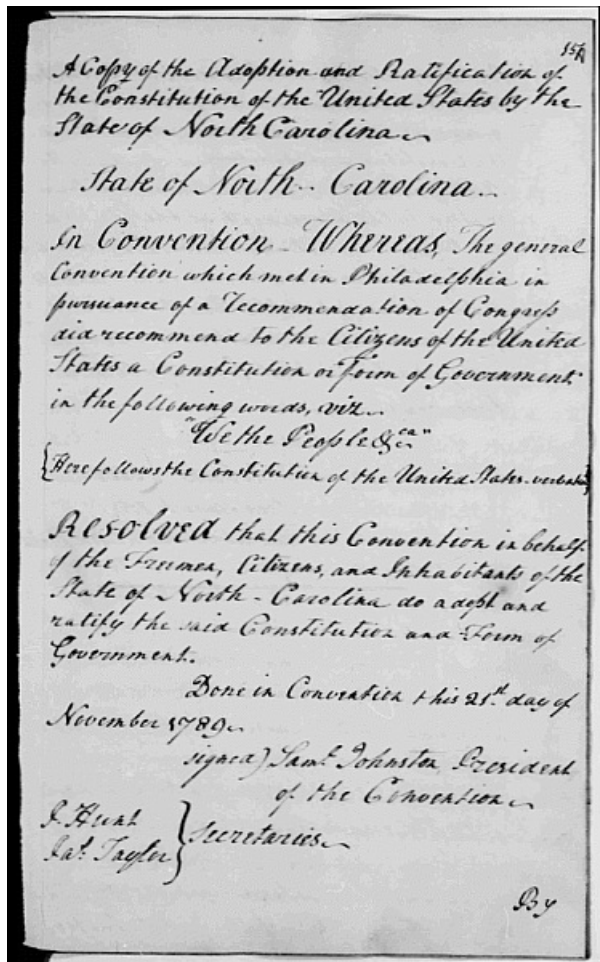 A Copy of the Adoption and Ratification of
the Constitution of the United States by the
State of North Carolina
State of North-Carolina
In Convention Whereas, The general
Convention which met in Philadelphia in
pursuance of a recommendation of Congress
did recommend to the Citizens of the United
States a Constitution or form of Government
in the following words, viz
"We the People &ca"
{Here follows the Constitution of the United States verbatim}
Resolved that this Convention in behalf
of the Freemen, Citizens, and Inhabitants of the
State of North-Carolina do adopt and
ratify the said Constitution and Form of
Government.
Done in Convention this 21st day of
November 1789
signed) Saml Johnston President
of the Convention
J. Hunt
Jas. Taylor } Secretaries
By